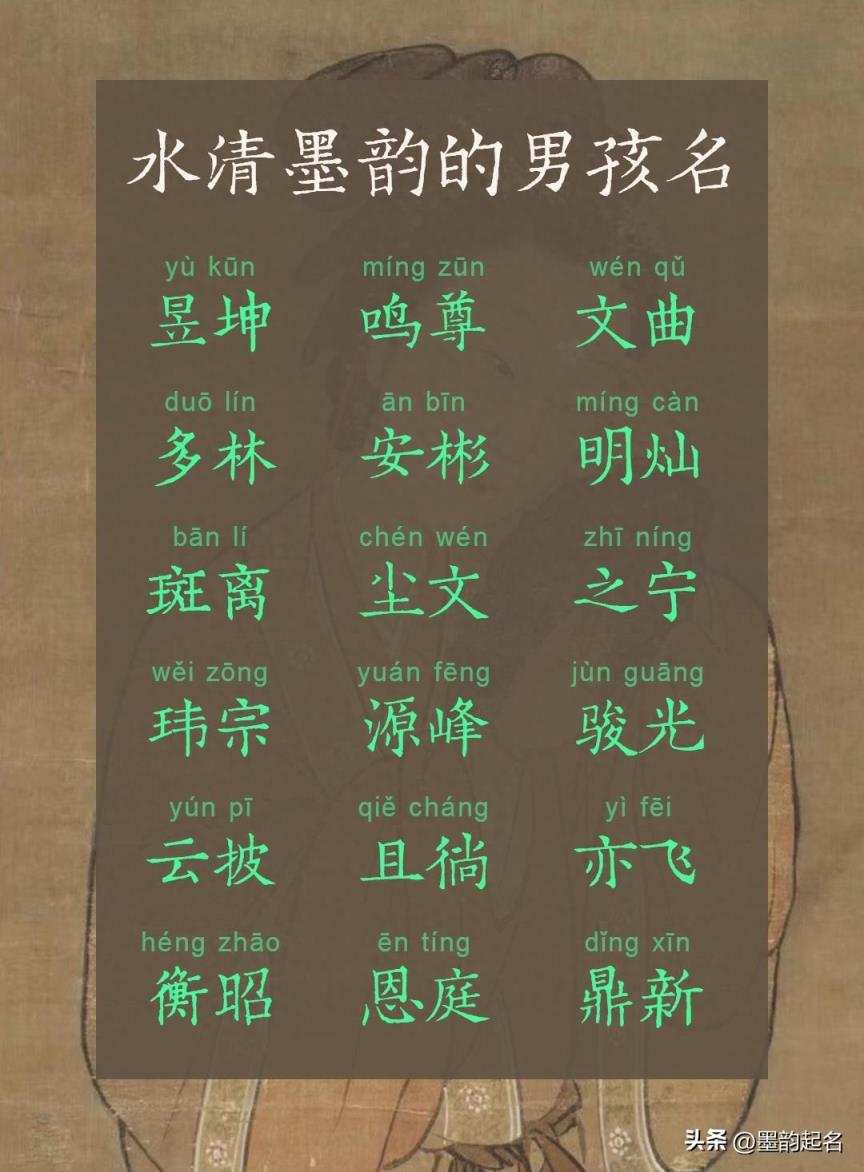 水清墨韵的男孩名
yù kūn míng zūn wén qǔ
昱坤 鸣尊 文曲
duō lín ān bīn míng càn
多林 安彬 明灿
bān lí chén wén zhī níng
斑离 尘文 之宁
wěi zōng yuán fēng jùn guāng
玮宗 源峰 骏光
yún pī qiě cháng yì fēi
云披 且徜 亦飞
héng zhāo ēn tíng dǐng xīn
衡昭 恩庭 鼎新
头条 @墨韵起名